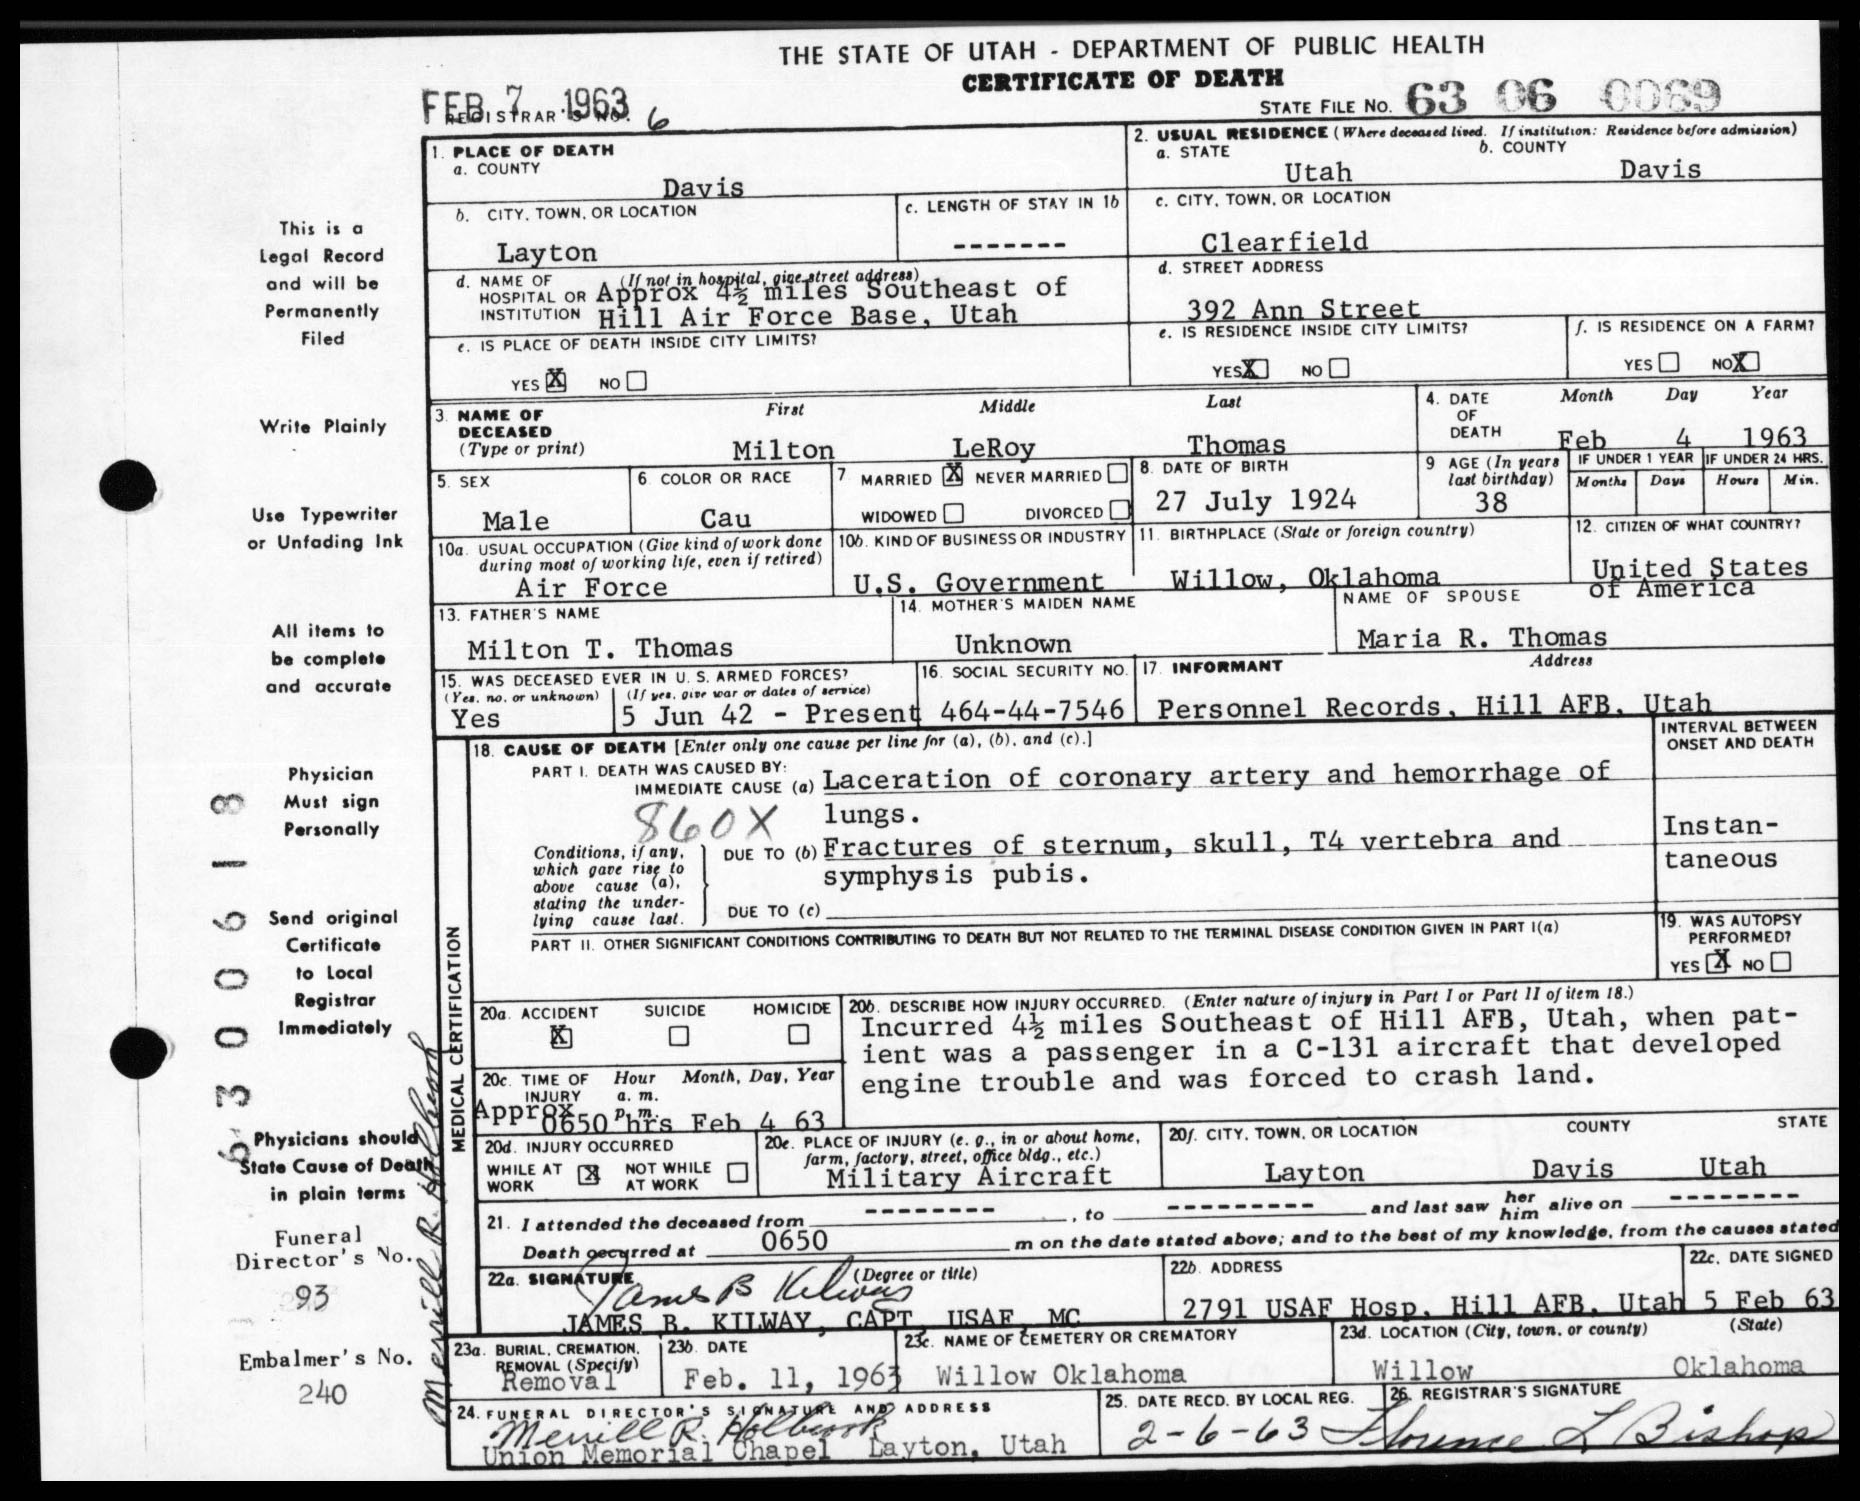 THE STATE OF UTAH - DEPARTMENT OF PUBLIC HEALTH
CERTIFICATE OF DEATH
FEB 7 1963
REGISTRAR'S NO. 6
STATE FILE NO. 63 06 0069
1. PLACE OF DEATH
a. COUNTY
Davis
2. USUAL RESIDENCE (Where deceased lived. If institution: Residence before admission)
a. STATE
Utah
b. COUNTY
Davis
b. CITY, TOWN, OR LOCATION
Layton
c. LENGTH OF STAY IN 1b
-------
c. CITY, TOWN, OR LOCATION
Clearfield
d. NAME OF HOSPITAL OR INSTITUTION
(If not in hospital, give street address)
Approx 4½ miles Southeast of
Hill Air Force Base, Utah
d. STREET ADDRESS
392 Ann Street
e. IS PLACE OF DEATH INSIDE CITY LIMITS?
YES X NO
e. IS RESIDENCE INSIDE CITY LIMITS?
YES X NO
f. IS RESIDENCE ON A FARM?
YES NO X
3. NAME OF DECEASED
(Type or print)
First Middle Last
Milton LeRoy Thomas
4. DATE OF DEATH
Month Day Year
Feb 4 1963
5. SEX
Male
6 COLOR OR RACE
Cau
7 MARRIED X NEVER MARRIED
WIDOWED DIVORCED
8. DATE OF BIRTH
27 July 1924
9 AGE (In years last birthday)
38
IF UNDER 1 YEAR
Months Days
IF UNDER 24 HRS.
Hours Min.
10a. USUAL OCCUPATION (Give kind of work done
during most of working life, even if retired)
Air Force
10b. KIND OF BUSINESS OR INDUSTRY
U.S. Government
11. BIRTHPLACE (State or foreign country)
Willow, Oklahoma
12. CITIZEN OF WHAT COUNTRY?
United States
of America
13. FATHER'S NAME
Milton T. Thomas
14. MOTHER'S MAIDEN NAME
Unknown
NAME OF SPOUSE
Maria R. Thomas
15. WAS DECEASED EVER IN U. S. ARMED FORCES?
(Yes, no, or unknown) (If yes, give war or dates of service)
Yes 5 Jun 42 - Present
16. SOCIAL SECURITY NO.
464-44-7546
17. INFORMANT Address
Personnel Records, Hill AFB, Utah
18. CAUSE OF DEATH [Enter only one cause per line for (a), (b), and (c).]
PART I. DEATH WAS CAUSED BY:
IMMEDIATE CAUSE (a) Laceration of coronary artery and hemorrhage of
lungs.
860X
Conditions, if any,
which gave rise to
above cause (a),
stating the under-
lying cause last.
DUE TO (b) Fractures of sternum, skull, T4 vertebra and
symphysis pubis.
DUE TO (c)
INTERVAL BETWEEN
ONSET AND DEATH
Instan-
taneous
PART II. OTHER SIGNIFICANT CONDITIONS CONTRIBUTING TO DEATH BUT NOT RELATED TO THE TERMINAL DISEASE CONDITION GIVEN IN PART I(a)
19. WAS AUTOPSY
PERFORMED?
YES X NO
MEDICAL CERTIFICATION
20a. ACCIDENT SUICIDE HOMICIDE
X
20b. DESCRIBE HOW INJURY OCCURRED. (Enter nature of injury in Part I or Part II of item 18.)
Incurred 4½ miles Southeast of Hill AFB, Utah, when pat-
ient was a passenger in a C-131 aircraft that developed
engine trouble and was forced to crash land.
20c. TIME OF INJURY
Hour Month, Day, Year
a. m.
p. m.
Approx
0650 hrs Feb 4 63
20d. INJURY OCCURRED
WHILE AT WORK X NOT WHILE AT WORK
20e. PLACE OF INJURY (e. g., in or about home,
farm, factory, street, office bldg., etc.)
Military Aircraft
20f. CITY, TOWN, OR LOCATION COUNTY STATE
Layton Davis Utah
21. I attended the deceased from --------, to --------- and last saw her him alive on --------
Death occurred at 0650 m on the date stated above; and to the best of my knowledge, from the causes stated
22a. SIGNATURE (Degree or title)
James B Kilway
JAMES B. KILWAY, CAPT, USAF, MC
22b. ADDRESS
2791 USAF Hosp, Hill AFB, Utah
22c. DATE SIGNED
5 Feb 63
23a. BURIAL, CREMATION,
REMOVAL (Specify)
Removal
23b. DATE
Feb. 11, 1963
23c. NAME OF CEMETERY OR CREMATORY
Willow Oklahoma
23d. LOCATION (City, town, or county) (State)
Willow Oklahoma
24. FUNERAL DIRECTOR'S SIGNATURE AND ADDRESS
Merrill R. Holbrook
Union Memorial Chapel Layton, Utah
25. DATE RECD. BY LOCAL REG.
2-6-63
26. REGISTRAR'S SIGNATURE
Florence L Bishop
This is a
Legal Record
and will be
Permanently
Filed
Write Plainly
Use Typewriter
or Unfading Ink
All items to
be complete
and accurate
Physician
Must sign
Personally
Send original
Certificate
to Local
Registrar
Immediately
Physicians should
State Cause of Death
in plain terms
Funeral
Director's No.
93
Embalmer's No.
240
63 0618
Merrill R. Holbrook